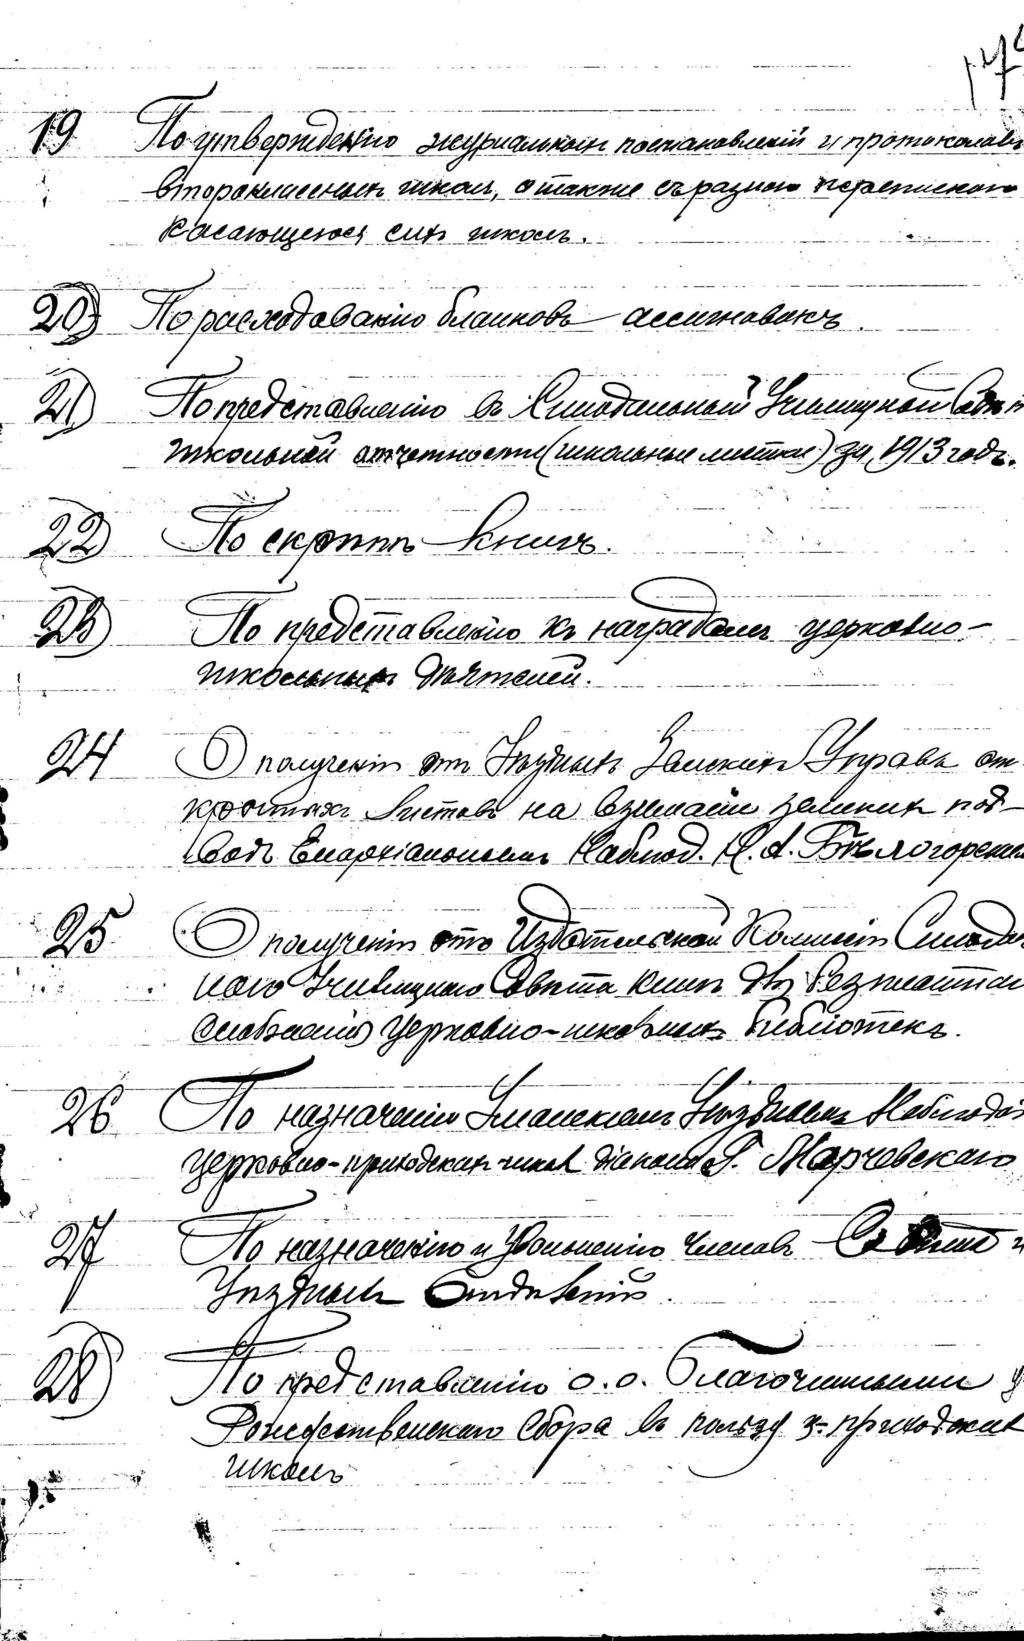 19 По утвержденію журнальныхъ постановленій и протоколовъ
второклассныхъ школъ, а также съ разною перепискою
касающеюся сихъ школъ.
20) По расходованію бланковъ ассигновокъ.
21) По представленію въ Синодальный Училищный Совѣтъ
школьной отчетности (школьные листки) за 1913 годъ.
22) По скрѣпѣ книгъ.
23) По представленію къ наградамъ церковно-
школьныхъ дѣятелей.
24 О полученіи отъ Уѣздныхъ Земскихъ Управъ от
крытыхъ листовъ на взиманіе земскихъ под-
водъ Епархіальнымъ Наблюд. Н. А. Бѣлогорскимъ
25 О полученіи отъ Издательской Комиссіи Синодаль
наго Училищнаго Совѣта книгъ для безплатнаго
снабженія церковно-школьныхъ библіотекъ.
26 По назначенію Уманскимъ Уѣзднымъ Наблюдат
церковно-приходскихъ школъ діакона Г. Марчевскаго
27 По назначенію и увольненію членовъ Совѣта и
Уѣздныхъ Отдѣленій.
28) По представленію о.о. Благочинными
Рождественскаго сбора въ пользу ц.-приходскихъ
школъ